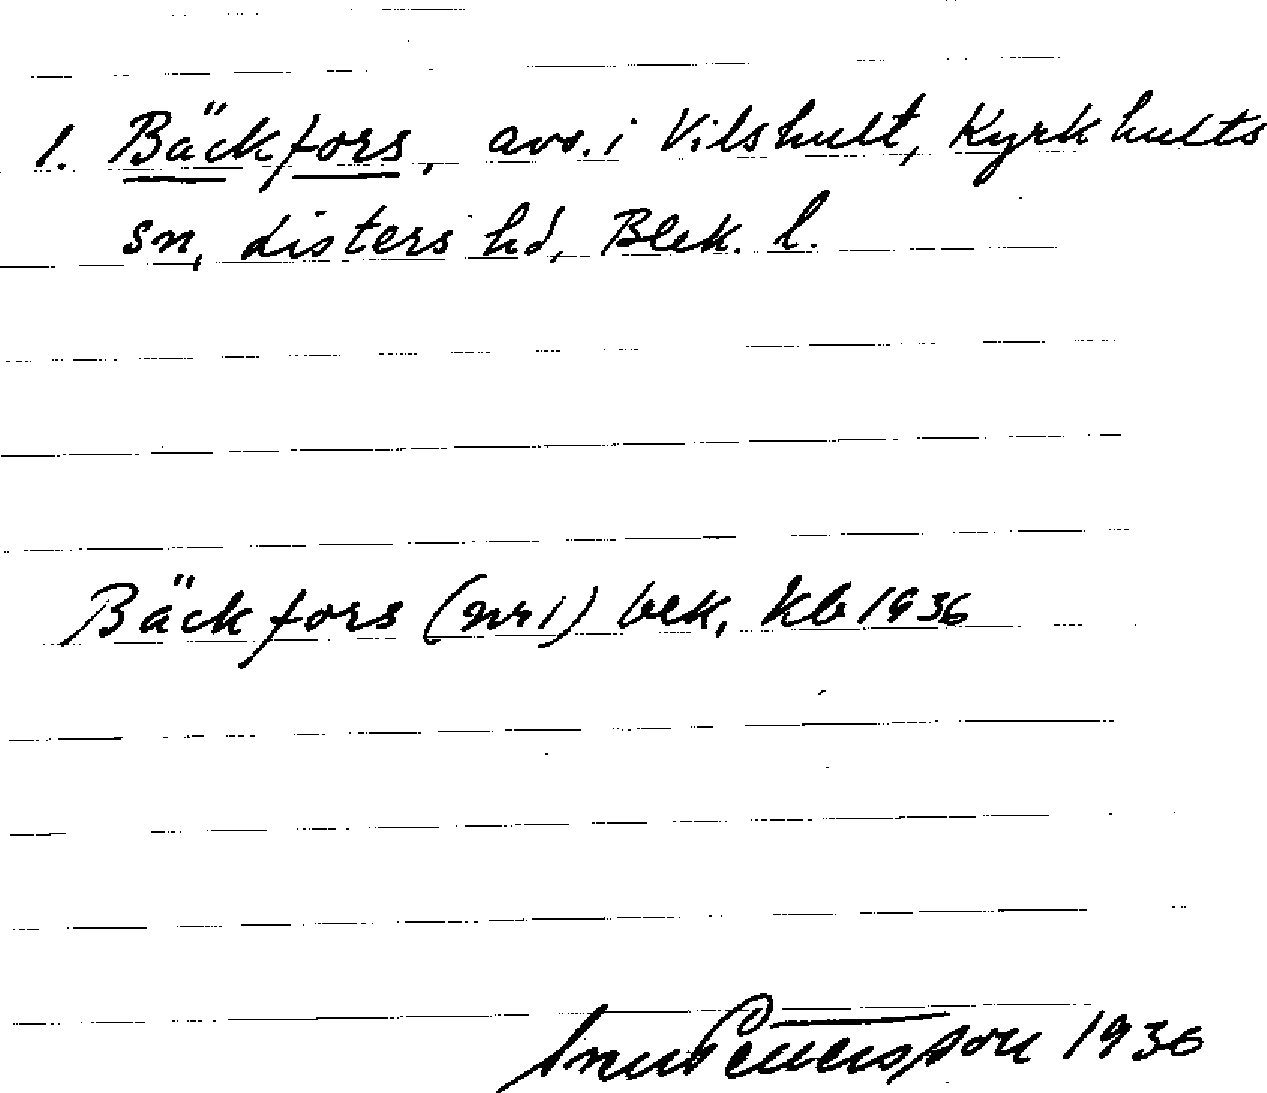 1. Bäckfors, avs. i Vilshult, Kyrkhults
sn, Listers hd, Blek. l.
Bäckfors (nr 1) bek, kb 1936
Pettersson 1936